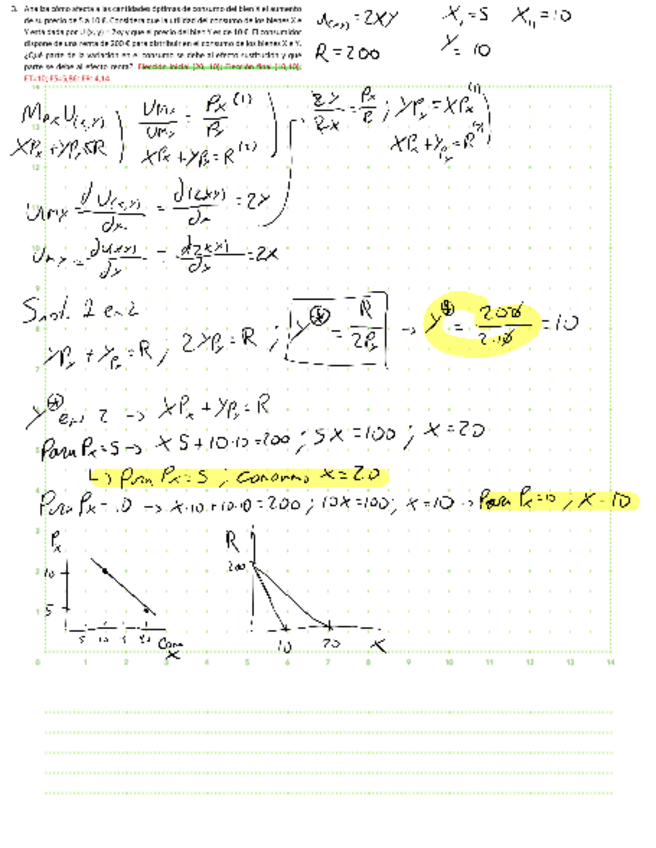 3. Analiza cómo afecta a las cantidades óptimas de consumo del bien X el aumento
de su precio de 5 a 10 €. Considera que la utilidad del consumo de los bienes X e
Y está dada por U (x, y) = 2xy y que el precio del bien Y es de 10 €. El consumidor
dispone de una renta de 200 € para distribuir en el consumo de los bienes X e Y.
¿Qué parte de la variación en el consumo se debe al efecto sustitución y que
parte se debe al efecto renta? Elección inicial (20, 10); Elección final (10,10);
ET=10; ES=5,86; ER= 4,14
U(x,y) = 2XY X₁=5 X₁₁=10
R=200 Y= 10
Max U(x,y)
XPx + YPy≤R
Umx/Umy = Px/Py (1)
XPx + YPy = R (2)
2Y/2X = Px/P ; YPy = XPx (1)
XPx + YPy = R (2)
Umx = dU(x,y)/dx = d(2xy)/dx = 2Y
Umy = dU(x,y)/dy = d2xy/dy = 2X
Sust. 1 en 2
YPy + YPy = R ; 2YPy = R ; Y* = R/2Py → Y* = 200/2·10 = 10
Y* en 2 → XPx + YPy = R
Para Px=5 → X 5 + 10·10 = 200 ; 5X = 100 ; X = 20
↳ Para Px = 5 ; consumo X = 20
Para Px = 10 → X·10 + 10·10 = 200 ; 10X = 100 ; X = 10 → Para Px = 10 ; X = 10
Px
10
5
5 10
Cons X
R
200
10 20 X
14
13
12
11
10
9
8
7
6
5
4
3
2
1
0 1 2 3 4 5 6 7 8 9 10 11 12 13 14